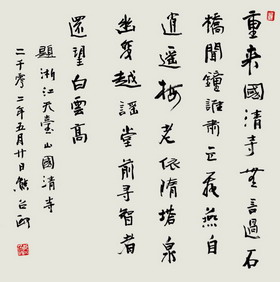 重來國清寺無言過石
橋聞鐘誰肅立飛燕自
逍遥梅老依隋塔泉
幽發越謡堂前尋智者
還望白雲高
題浙江天臺山國清寺
二千零二年五月廿日熊召政